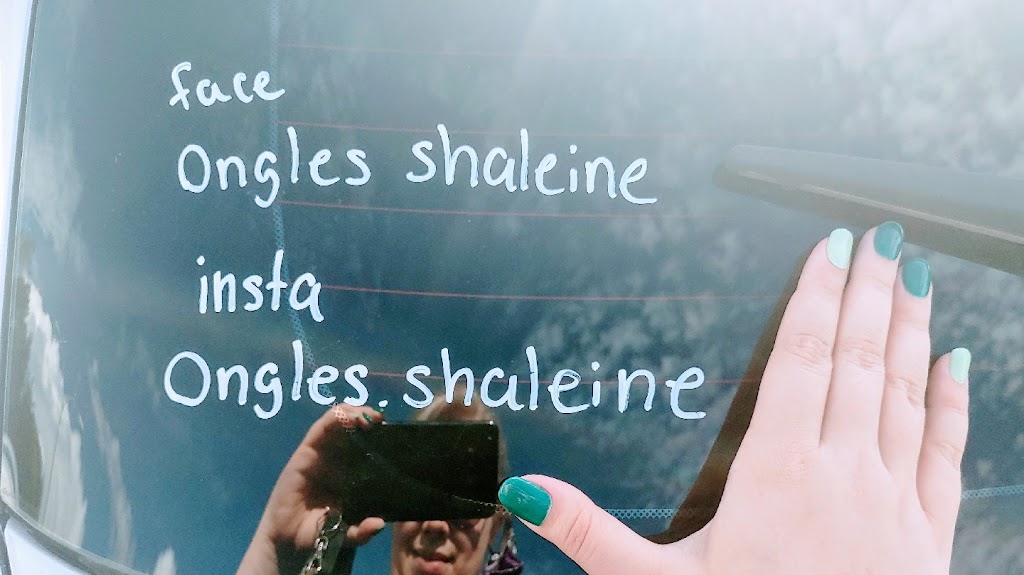 face
Ongles shaleine
insta
Ongles.shaleine